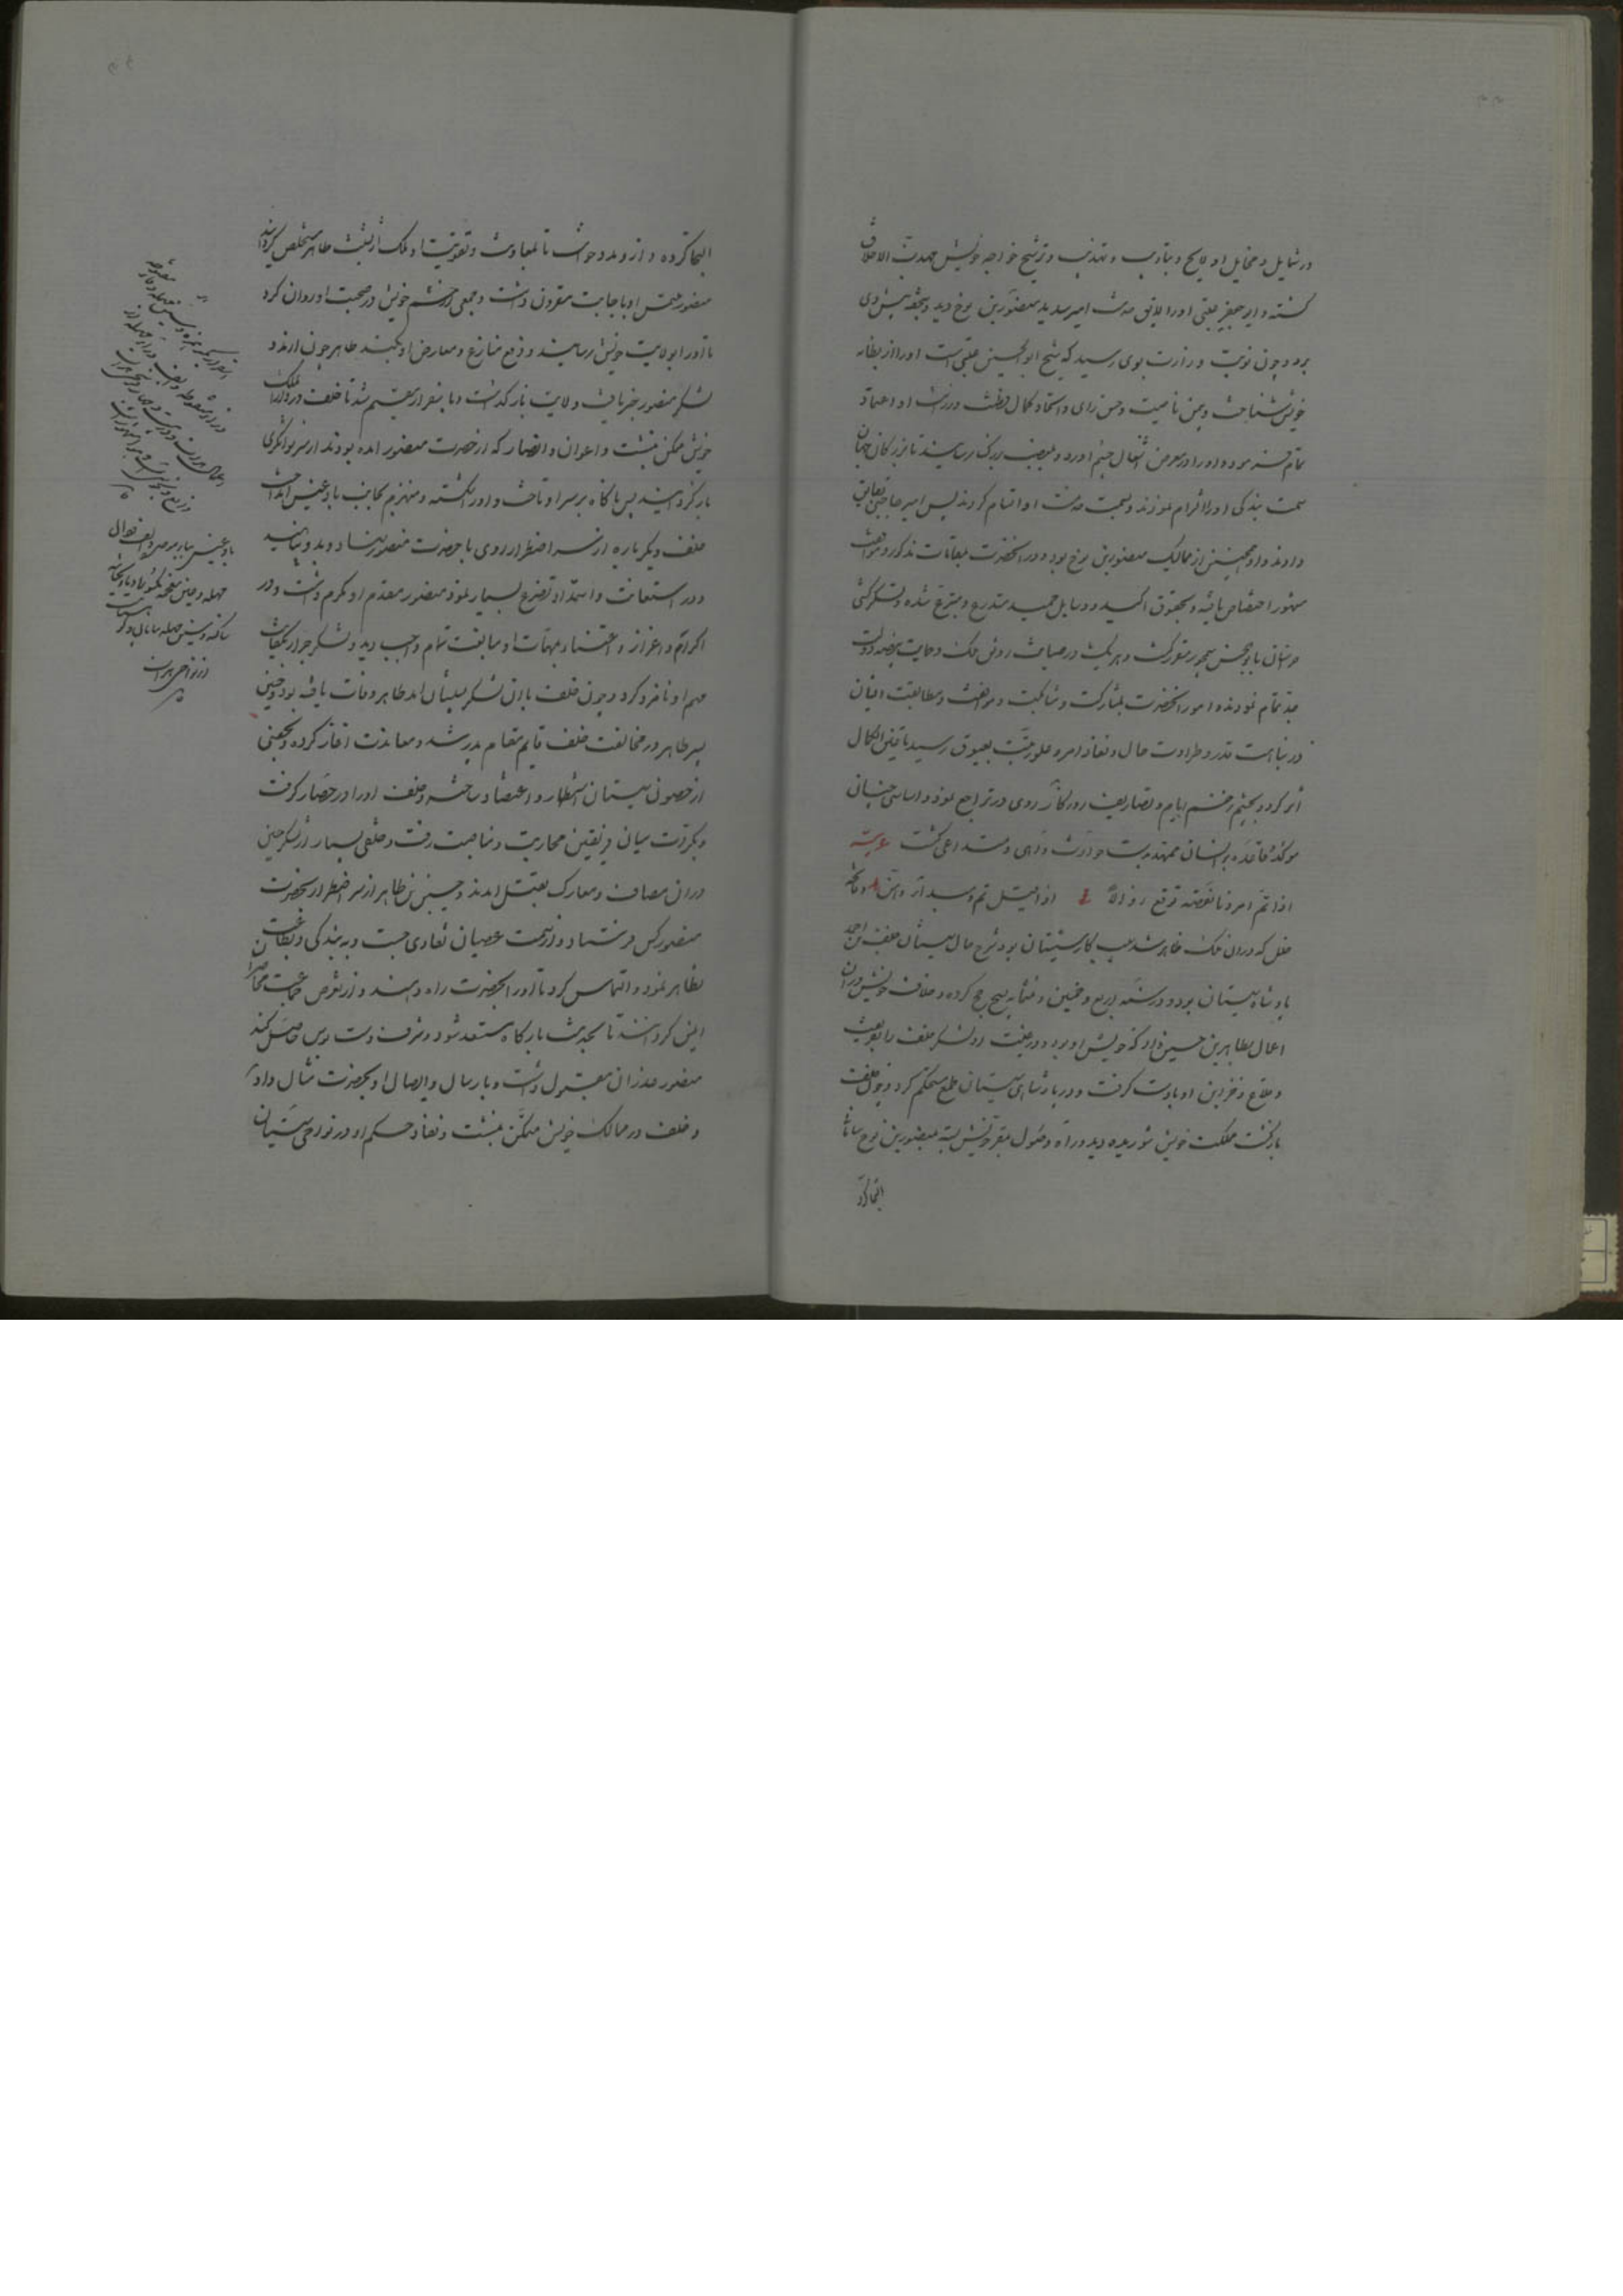 در شمایل و مخایل او لایح و بتادیب و تهذیب و ترشیح خواجه خویش مهذب الاخلاق
کشته و ابو جعفر عتبی او را لایق خدمت امیر سدید منصور بن نوح دید و بتحفه پیش وی
برد و چون نوبت وزارت بوی رسید که شیخ ابو الحسین عتبی است او را از بطانه
خویش شناخت و بیمن ناصیت و حسن رای و استحاد کمال فطنت و رزانت او اعتماد
تمام فرمود و او را در معرض اشغال جسیم آورد و بمنصب بزرک رسانید تا بزرکان جهان
سمت بندکی او را التزام نمودند و بسمت خدمت او اتسام کردند پس امیر حاجبی
دادند و او همچنین از ممالیک منصور بن نوح بود و در آن حضرت بمقامات مذکور و مواقف
مشهور اختصاص یافته و بحقوق اکید و وسایل حمید متدرع و متبرع شده و لشکرکشی
خراسان بابو الحسن سیمجور مقرر کشت و هر یک در صیانت رونق ملک و حمایت بیضه دولت
ید تمام نمودند و امور آن حضرت بمشارکت و مشابکت و موافقت و مطابقت ایشان
در نباهت قدر و طراوت حال و نفاذ امر و علو رتبت بعیوق رسید تا عین الکمال
اثر کرد و بچشم زخم ایام و تصاریف روزکار روی در تراجع نهاد و اساسی چنان
موکد و قاعده بر آنسان ممهد بدست حوادث واهی و متداعی کشت عربیه
اذا تم امر دنا نقصه توقع زوالا اذا قیل تم و مبدأ آن و
خلل که در آن ملک ظاهر شد بسبب کار سیستان بود شرح حال سیستان خلف بن احمد
پادشاه سیستان بود و در سنه اربع و خمسین و ثلثمایه بسیج حج کرده و خلافت خویش در آن
اعمال بطاهر بن حسین داد که خویش او بود و در غیبت او لشکر خلف را بفریفت
و قلاع و خزاین او بدست کرفت و در پادشاهی سیستان طمع مستحکم کرد و چون خلف
بازکشت مملکت خویش شوریده دید و راه وصول بمقر خویش بسته بمنصور بن نوح سامانی
التجا کرد
التجا کرده و از وی مدد خواست تا بمعاونت و تقویت او ملک از تشبث طاهر مستخلص کرداند
منصور ملتمس او باجابت مقرون داشت و جمعی از حشم خویش در صحبت او روان کرد
تا او را بولایت خویش رسانیدند و دفع منازع و معارض او بکنند طاهر چون از مدد
لشکر منصور خبر یافت ولایت بازکذاشت و باسفزار مقیم شد تا خلف در دارالملک
خویش متمکن بنشست و اعوان و انصار که از حضرت منصور آمده بودند از سر توانکری
بازکردانید پس ناکاه بر سر او تاخت و او را شکسته و منهزم بجانب بادغیس انداخت
خلف دیکر باره از سر اضطرار روی با حضرت منصور نهاد و بدو پناهید
و در استعانت و استمداد تضرع بسیار نمود منصور مقدم او مکرم داشت و در
اکرام و اعزاز و اعتناء بمهمات او مبالغت تمام واجب دید و لشکر جرار بکفایت
مهم او نامزد کرد و چون خلف با آن لشکر بسیستان آمد طاهر وفات یافته بود و حسین
پسر طاهر در مخالفت خلف قایم مقام پدر شد و معاندت آغاز کرده و بحصنی
از حصون سیستان استظهار و اعتضاد ساخته و خلف او را در حصار کرفت
و بکرات میان فریقین محاربت و مناصبت رفت و خلقی بسیار از لشکر حسین
در آن مصاف و معارک بقتل آمدند و حسین بن طاهر از سر اضطرار بحضرت
منصور کس فرستاد و از سمت عصیان تفادی جست و به بندکی و طاعت
تظاهر نمود و التماس کرد تا او را بحضرت راه دهند و از تعرض جماعت محاصران
ایمن کردانند تا بخدمت بارکاه مستعد شود و شرف دست بوس حاصل کند
منصور عذر آن مقبول داشت و بارسال و ایصال او بحضرت مثال داد
و خلف در ممالک خویش متمکن بنشست و نفاذ حکم او در نواحی سیستان
بادغیس بباء موحده و الف و دال
مهمله و غین معجمه مکسوره و یاء تحتانیه
ساکنه و سین مهمله
از نواحی هرات